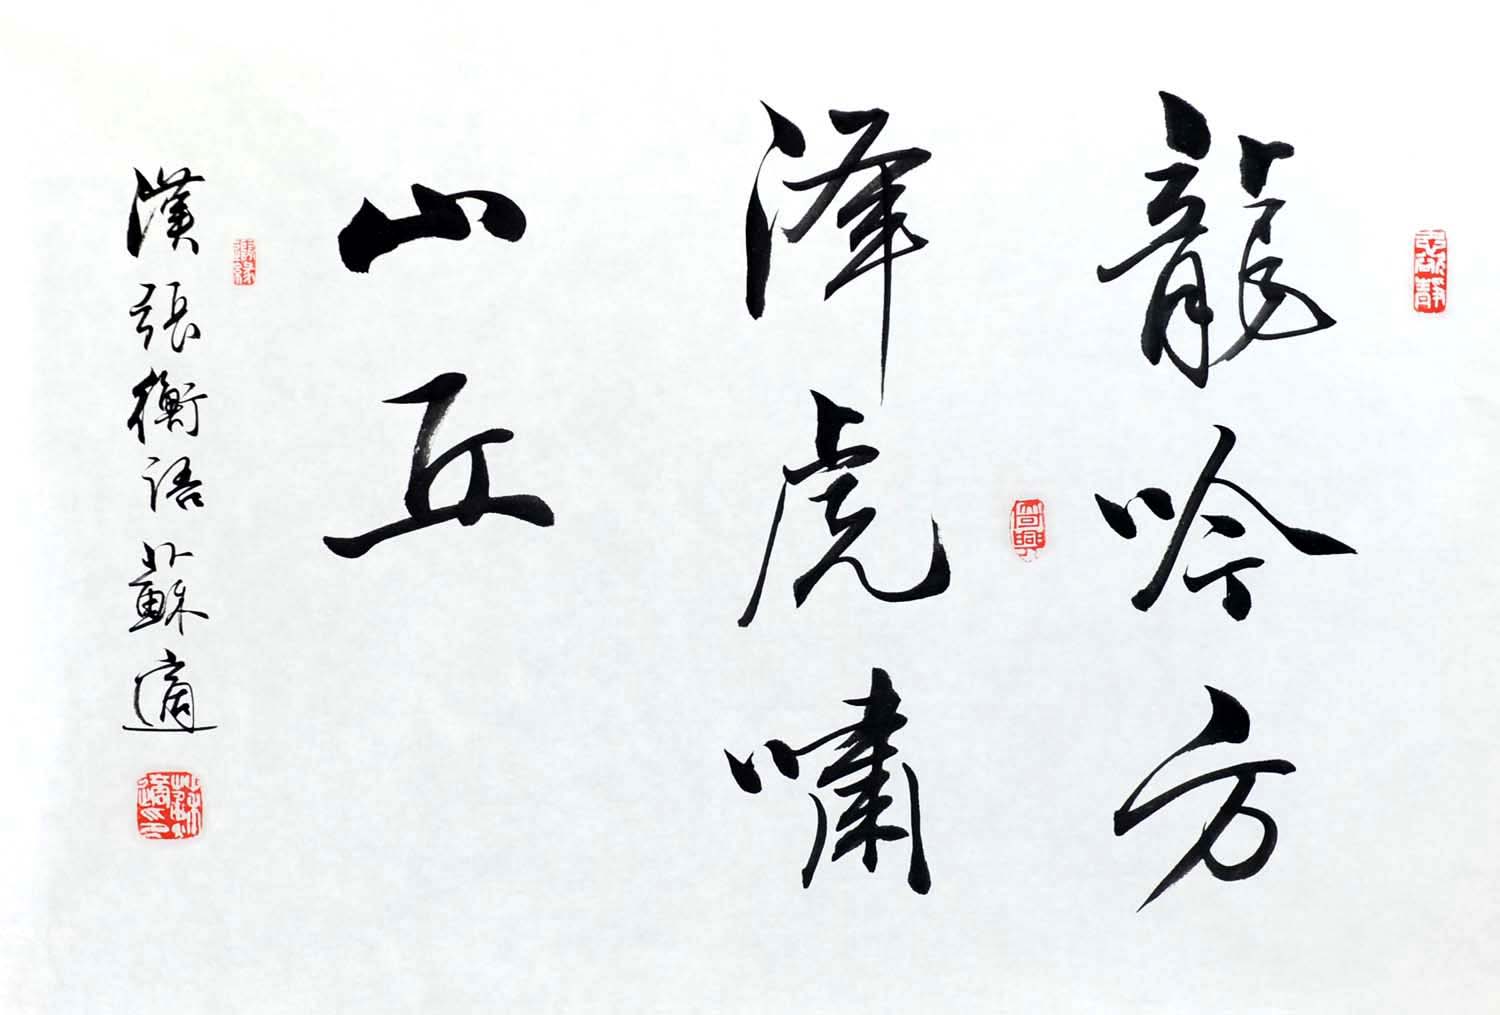 龍吟方
澤虎嘯
山丘
漢張衡語蘇適